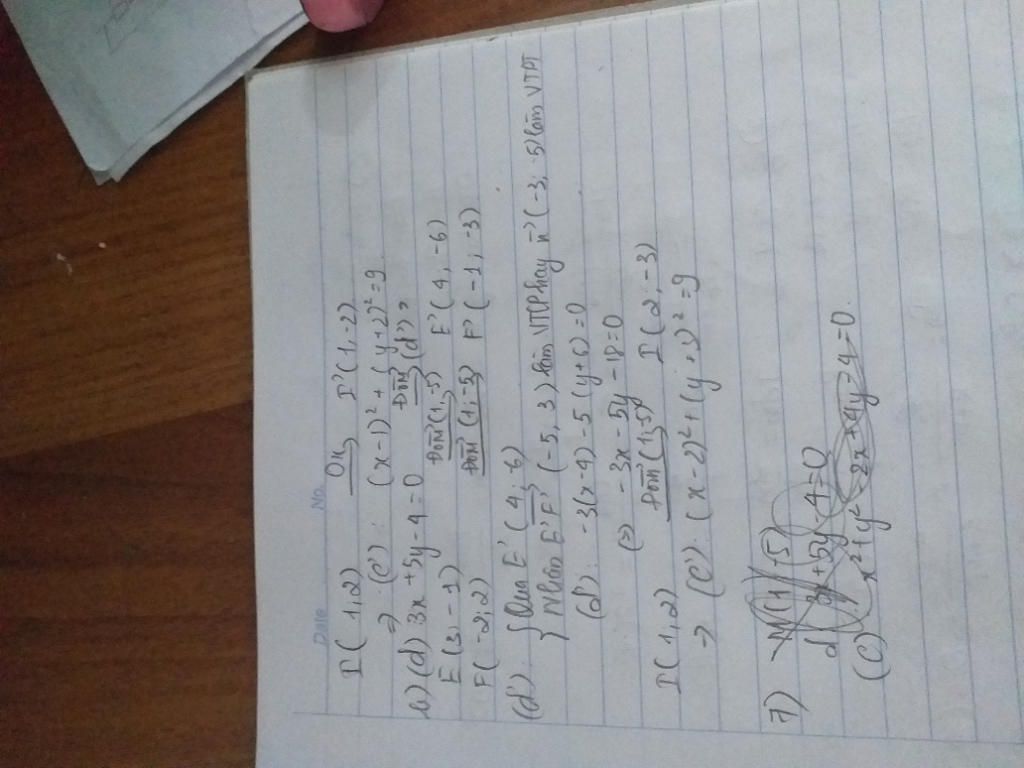 Date No.
I(1,2) Ox I'(1,-2)
=> (C'): (x-1)² + (y+2)² = 9.
b) (d) 3x + 5y - 4 = 0 ĐOM (d')
E(3,-1) ĐOM(1;-5) E'(4,-6)
F(-2;2) ĐOM(1;-5) F'(-1;-3)
(d'): { Qua E'(4;-6)
{ Nhận E'F'(-5,3) làm VTCP hay n(-3;-5) làm VTPT
(d'): -3(x-4) - 5(y+6) = 0
(=) -3x - 5y - 18 = 0
I(1,2) ĐOM(1;-5) I(2,-3)
=> (C'): (x-2)² + (y+3)² = 9
7) M(1;-5)
d) 3x+5y-4=0
(C) x²+y²-2x+4y-4=0.